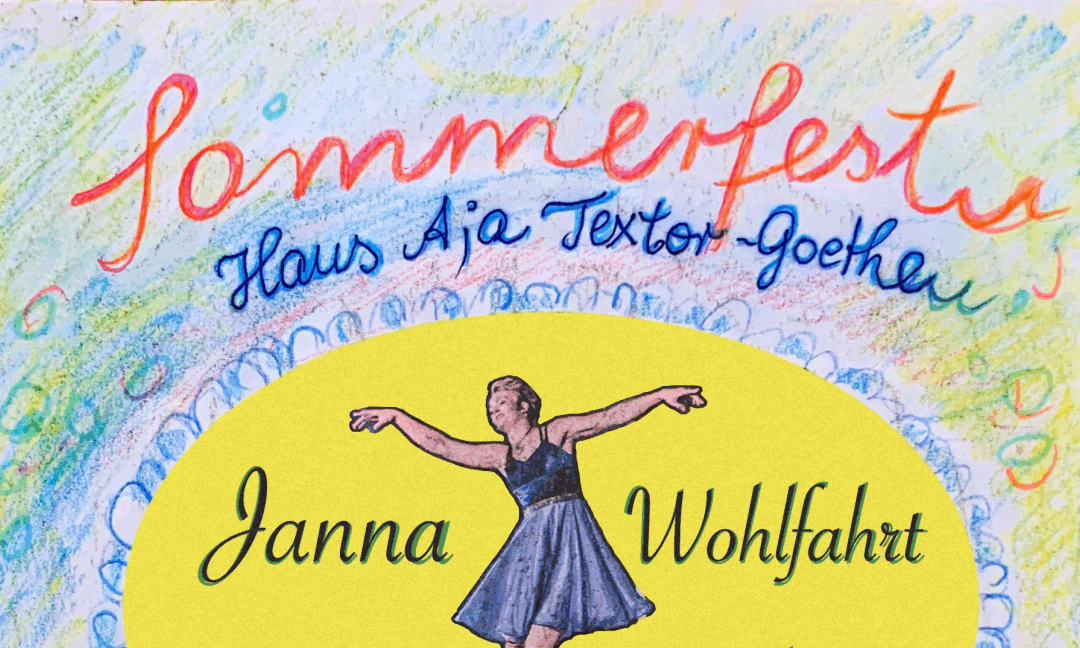 Sommerfest
Haus Aja Textor-Goethe
Janna Wohlfahrt